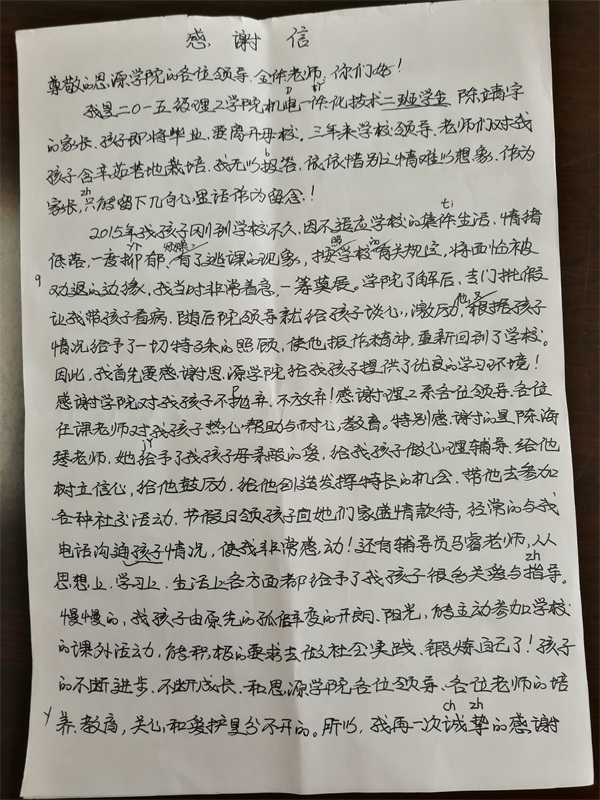 感谢信
尊敬的思源学院的各位领导、全体老师，你们好！
我是二〇一五级理工学院机电一体化技术二班学生 陈靖宇
的家长，孩子即将毕业，要离开母校。三年来学校领导、老师们对我
孩子含辛茹苦地栽培，我无以报答，依依惜别之情难以想象，作为
家长，只能留下几句心里话作为留念！
2015年我孩子刚到学校不久，因不适应学校的集体生活，情绪
低落，一度抑郁，有了逃课的现象，按学校有关规定，将面临被
劝退的边缘，我当时非常着急，一筹莫展。学院了解后，专门批假
让我带孩子看病，随后院领导就给孩子谈心，激励，根据孩子
情况给予了一切特殊的照顾，使他振作精神，重新回到了学校。
因此，我首先要感谢思源学院给我孩子提供了优良的学习环境！
感谢学院对我孩子不抛弃、不放弃！感谢理工系各位领导、各位
任课老师对我孩子热心帮助与耐心教育。特别感谢的是陈海
琴老师，她给予了我孩子母亲般的爱，给我孩子做心理辅导、给他
树立信心，给他鼓励，给他创造发挥特长的机会，带他去参加
各种社交活动，节假日领孩子回她们家盛情款待，经常的与我
电话沟通孩子情况，使我非常感动！还有辅导员马睿老师，从
思想上、学习上、生活上各方面都给予了我孩子很多关爱与指导。
慢慢的，我孩子由原先的孤僻变的开朗、阳光，能主动参加学校
的课外活动，能积极的要求去做社会实践、锻炼自己了！孩子
的不断进步、不断成长，和思源学院各位领导、各位老师的培
养、教育，关心和爱护是分不开的。所以，我再一次诚挚的感谢